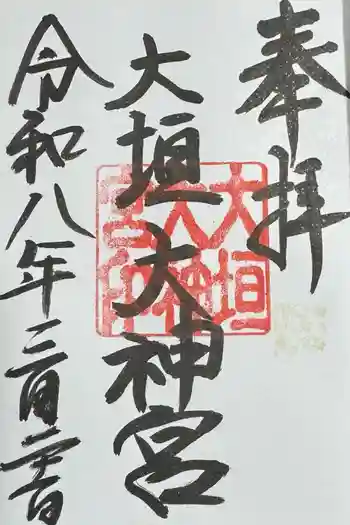 奉拝
大垣大神宮
令和八年三月二十日
大垣大神宮